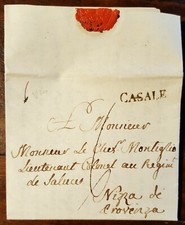 CASALE
A Monsieur
Monsieur Le Chev.r Montiglio
Lieutenant Colonel au Regim.t
de Saluces
Nizza di
Provenza